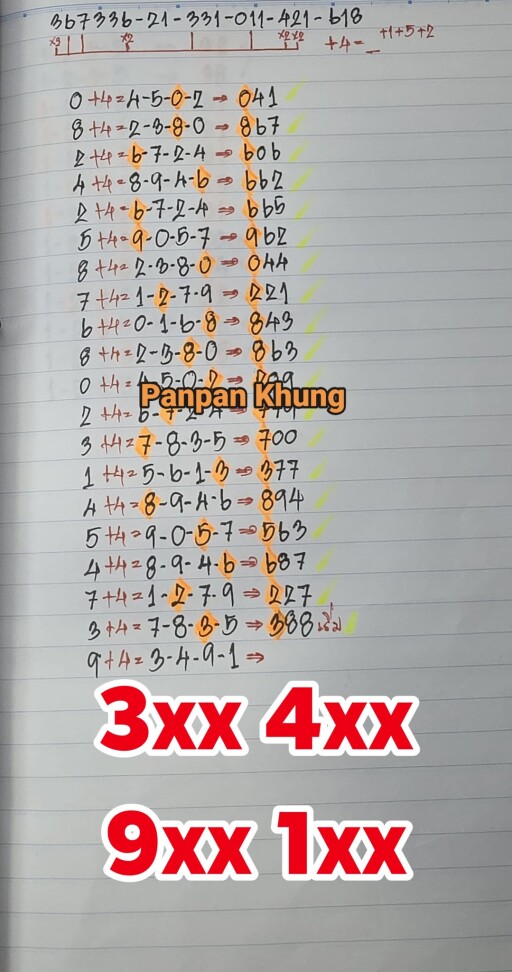 367336-21-331-011-421-618
x3 x2 x2 x2 +4=_ +1+5+2
0+4=4-5-0-2 ⇒ 041
8+4=2-3-8-0 ⇒ 867
2+4=6-7-2-4 ⇒ 606
4+4=8-9-4-6 ⇒ 662
2+4=6-7-2-4 ⇒ 665
5+4=9-0-5-7 ⇒ 962
8+4=2-3-8-0 ⇒ 044
7+4=1-2-7-9 ⇒ 221
6+4=0-1-6-8 ⇒ 843
8+4=2-3-8-0 ⇒ 863
0+4=4-5-0-2 ⇒
Panpan Khung
2+4=6-7-2-4 ⇒
3+4=7-8-3-5 ⇒ 700
1+4=5-6-1-3 ⇒ 377
4+4=8-9-4-6 ⇒ 894
5+4=9-0-5-7 ⇒ 563
4+4=8-9-4-6 ⇒ 687
7+4=1-2-7-9 ⇒ 227
3+4=7-8-3-5 ⇒ 388 เริ่ม
9+4=3-4-9-1 ⇒
3xx 4xx
9xx 1xx